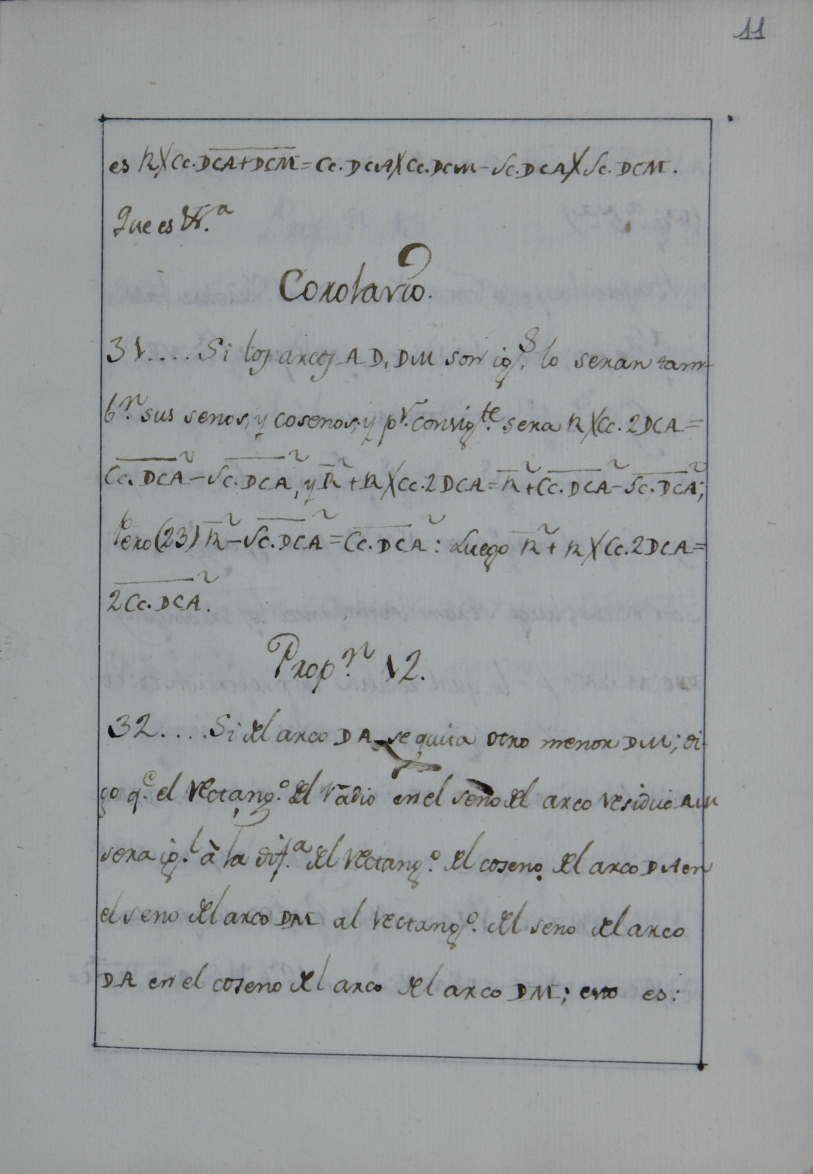 11
es R X Cc. DCA+DCM = Cc. DCA X Cc. DCM - Sc. DCA X Sc. DCM.
Que es &.ª
Corolario.
31.... Si los arcos AD, DM son ig.s lo seran tam-
b.n sus senos, y cosenos; y p.r consig.te sera R X Cc. 2DCA =
Cc. DCA² - Sc. DCA², y R² + R X Cc. 2DCA = R² + Cc. DCA² - Sc. DCA²;
Pero (23) R² - Sc. DCA² = Cc. DCA²: Luego R² + R X Cc. 2DCA =
2Cc. DCA².
Prop.n 12.
32.... Si del arco DA se quita otro menor DM; di-
go q.e el rectang.o del radio en el seno del arco residuo AM
sera ig.l à la dif.a del rectang.o del coseno del arco DA en
el seno del arco DM al rectang.o del seno del arco
DA en el coseno del arco del arco DM; esto es: